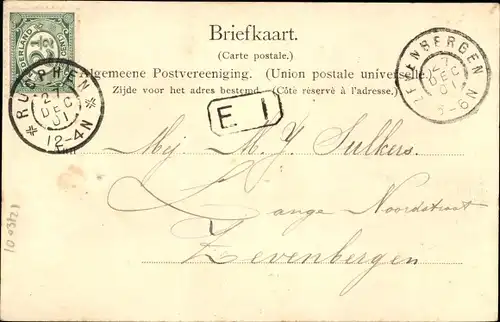 Briefkaart.
(Carte postale.)
Algemeene Postvereeniging. (Union postale universelle.)
Zijde voor het adres bestemd. (Côté réservé à l'adresse.)
NEDERLAND
2½
RUCPHEN
27
DEC
01
12-4N
ZEVENBERGEN
27
DEC
01
6N
E I
Aan
Mej. M. J. Sulkers.
Lange Noordstraat
Zevenbergen